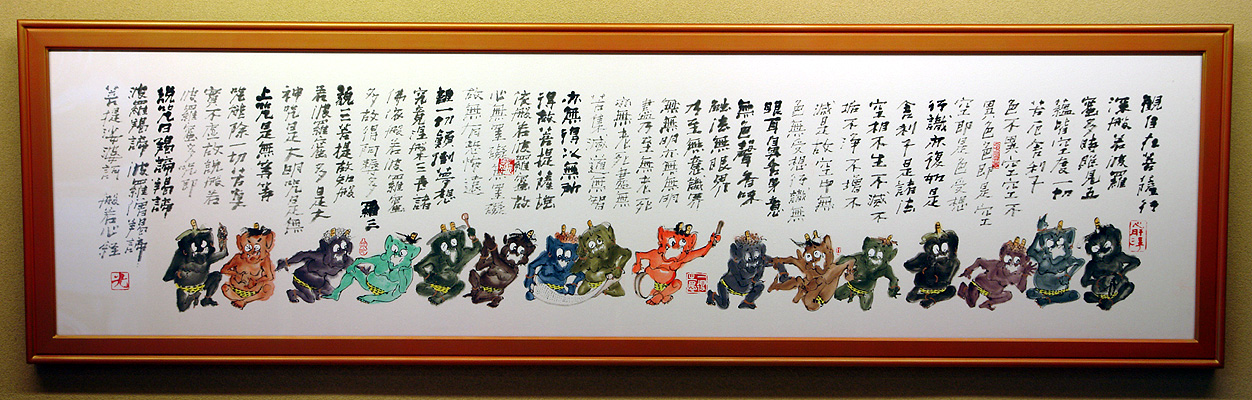 觀自在菩薩行
深般若波羅
蜜多時照見五
蘊皆空度一切
苦厄舍利子
色不異空空不
異色色即是空
空即是色受想
行識亦復如是
舍利子是諸法
空相不生不滅不
垢不淨不增不
減是故空中無
色無受想行識無
眼耳鼻舌身意
無色聲香味
觸法無眼界
乃至無意識界
無無明亦無明
盡乃至無老死
亦無老死盡無
苦集滅道無智
亦無得以無所
得故菩提薩埵
依般若波羅蜜故
心無罣礙無罣礙
故無有恐怖遠
離一切顛倒夢想
究竟涅槃三世諸
佛依般若波羅蜜
多故得阿耨多羅三
藐三菩提故知般
若波羅蜜多是大
神咒是大明咒是無
上咒是無等等
咒能除一切苦真
實不虛故說般若
波羅蜜多咒即
說咒曰揭諦揭諦
波羅揭諦 波羅僧揭諦
菩提娑婆訶 般若心經